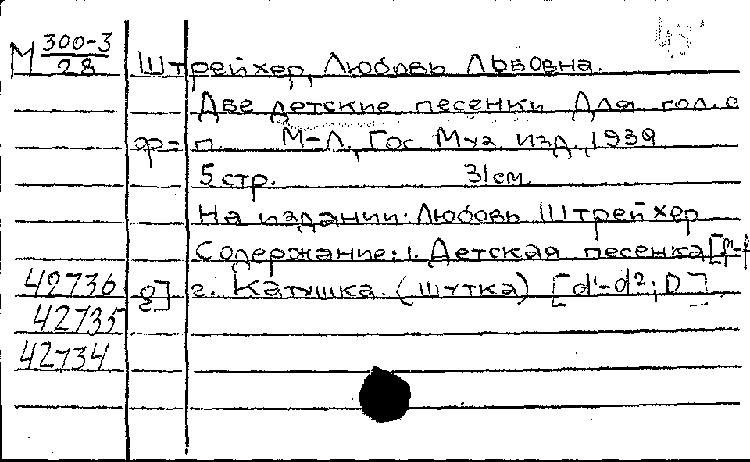 М 300-3/28
Штрейхер, Любовь Львовна.
Две детские песенки для гол. с
ф=п. М-Л, Гос Муз изд., 1939
5 стр. 31 см.
На издании: Любовь Штрейхер
Содержание: 1. Детская песенка
42736 2. Катушка. (шутка) [d¹-d²; D]
42735
42734